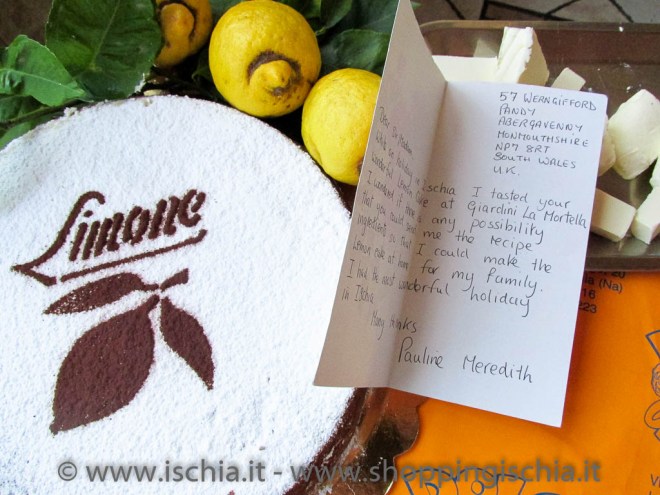 Limone
57 WERNGIFFORD
PANDY
ABERGAVENNY
MONMOUTHSHIRE
NP7 8RT
SOUTH WALES
U.K.
Dear Sir/Madam
While on holiday in Ischia I tasted your
wonderful Lemon cake at Giardini La Mortella
I wondered if there is any possibility
that you could send me the recipe
ingredients so that I could make the
Lemon cake at home for my family.
I had the most wonderful holiday
in Ischia
Many thanks
Pauline Meredith
20
(Na)
16
223
© www.ischia.it - www.shoppingischia.it